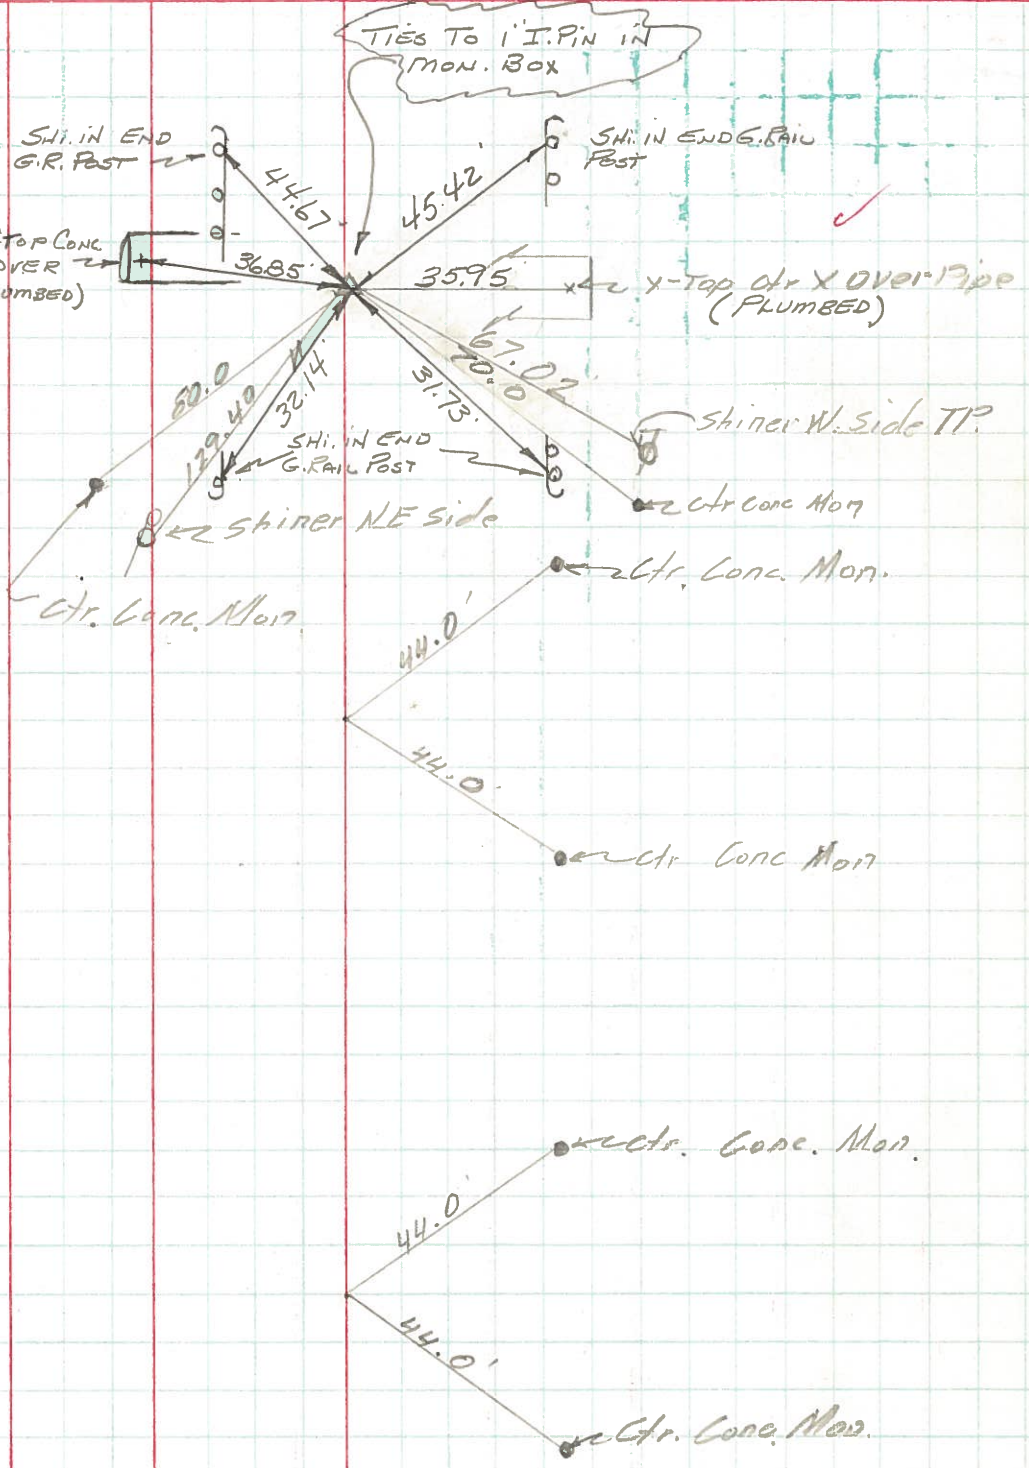 TIES TO 1" I.PIN IN
MON. BOX
SHI. IN END
G.R. POST
SHI. IN END G.RAIL
POST
44.67'
45.42'
TOP CONC
OVER
UMBED)
36.85'
35.95
X-Top Ctr X over Pipe
(PLUMBED)
67.02
70.0
31.73'
32.14'
129.40
SHI. IN END
G.RAIL POST
shiner W. Side T.P.
Ctr Conc Mon
shiner NE Side
Ctr. Conc. Mon.
Ctr. Conc. Mon.
44.0'
44.0'
Ctr Conc Mon
Ctr. Conc. Mon.
44.0'
44.0'
Ctr. Conc. Mon.